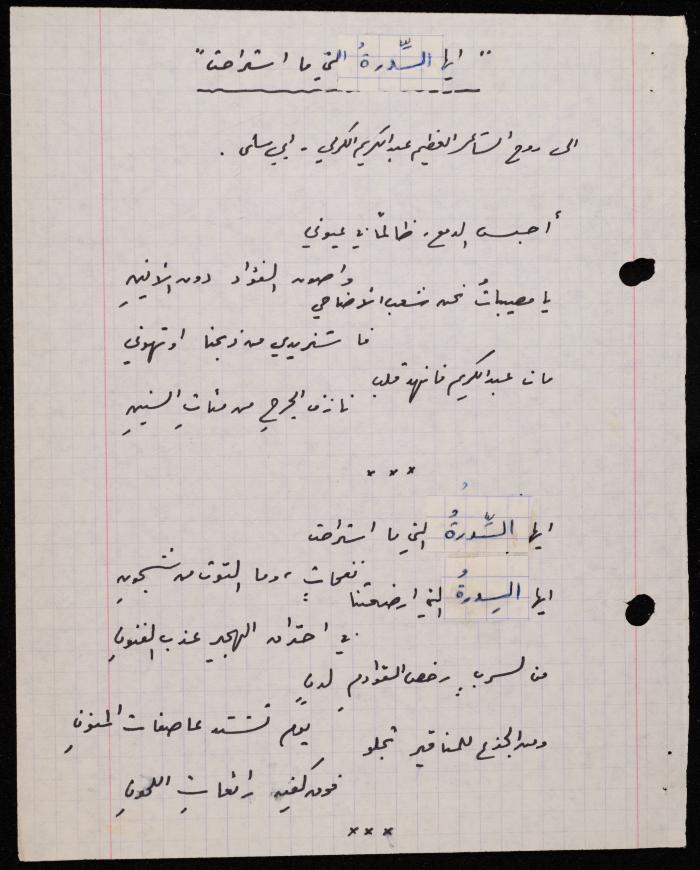 " ايها السِّدرةُ التي ما استراحت "
الى روح الشاعر العظيم عبدالكريم الكرمي - ابي سلمى .
أحبس الدمع، ظالماً في عيوني
واصون الفؤاد دون الانينِ
يا مصيباتُ نحن شعب الاضاحي
فا ستزيدي من ذبحنا او تهوني
مات عبدالكريم فانهدّ قلب
نازف الجرحِ من مئاتِ السنينِ
* * *
ايها السِّدرةُ التي ما استراحت
نفحاتٍ، وما التوت من شجونِ
ايها السِدرةُ التي ارضعتنا
في احتدام الهجير عذب الفنونِ
من لسربٍ رخص القوادمِ لدنٍ
يومَ تشتد عاصفات المنونِ
ومن الجذع للمناقير تجلو
فوق كفيه رائعاتِ اللحونِ
* * *